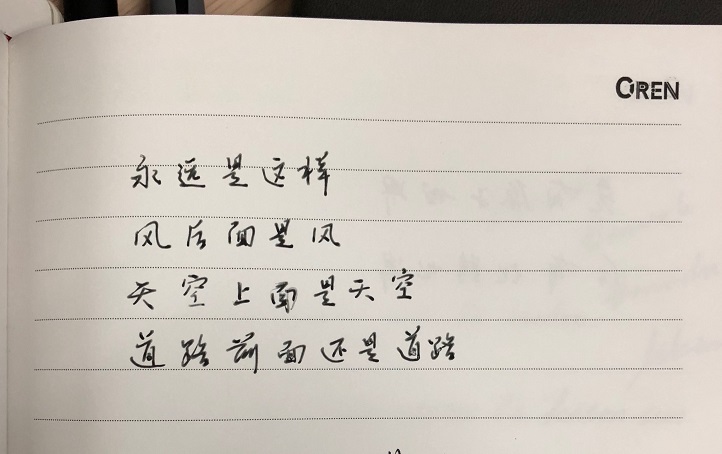 OREN
永远是这样
风后面是风
天空上面是天空
道路前面还是道路